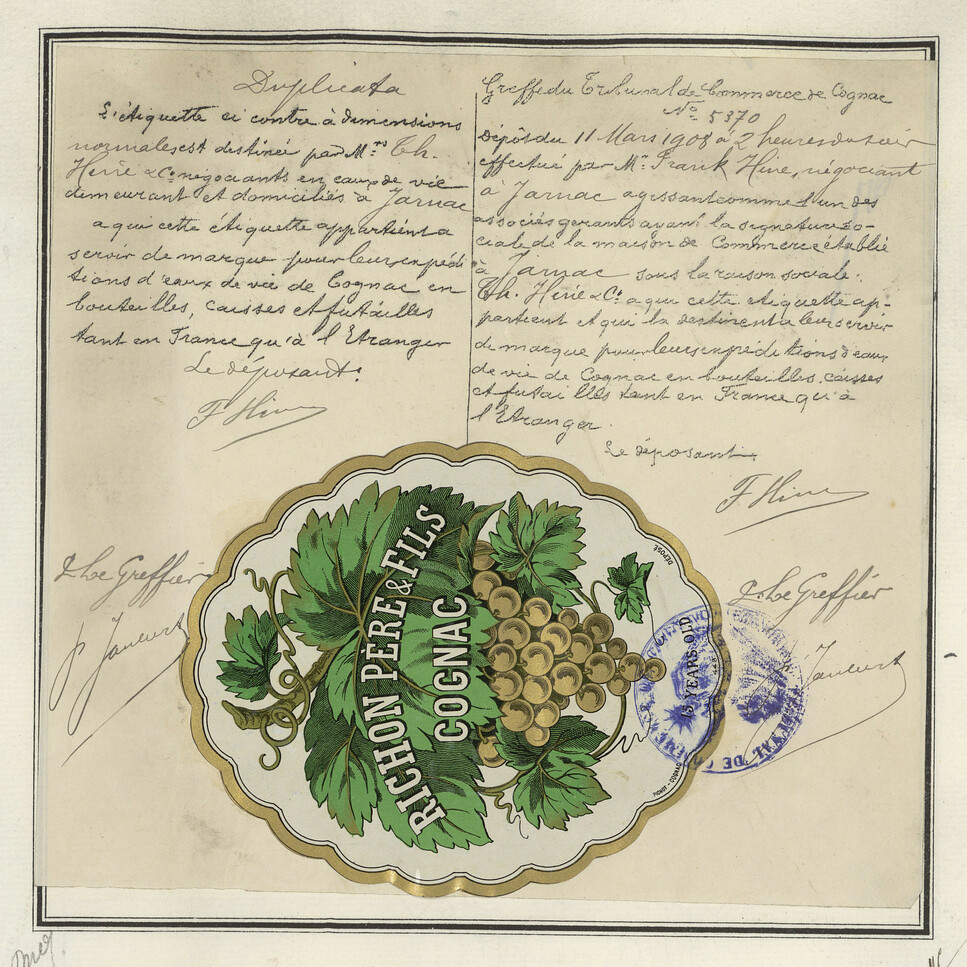 Duplicata
L'étiquette ci contre à dimensions
normales est destinée par Mrs Th.
Hine & Co négociants en eaux de vie
demeurant et domiciliés à Jarnac
a qui cette étiquette appartient a
servir de marque pour leurs expédi
tions d'eaux de vie de Cognac en
bouteilles, caisses et futailles
tant en France qu'à l'Etranger
Le déposant:
F Hine
Greffe du Tribunal de Commerce de Cognac
No 5370
Dépôt du 11 Mars 1908 à 2 heures du soir
effectué par Mr Frank Hine, négociant
à Jarnac agissant comme l'un des
associés gerants ayant la signature so-
ciale de la maison de Commerce établie
à Jarnac sous la raison sociale:
Th. Hine & Co a qui cette étiquette ap-
partient et qui la destinent a leur servir
de marque pour leurs expéditions d'eaux
de vie de Cognac en bouteilles, caisses
et futailles tant en France qu'à
l'Etranger.
Le déposant
F Hine
Le Greffier
Le Greffier
RICHON PÈRE & FILS
COGNAC
DÉPOSÉ
15 YEARS OLD